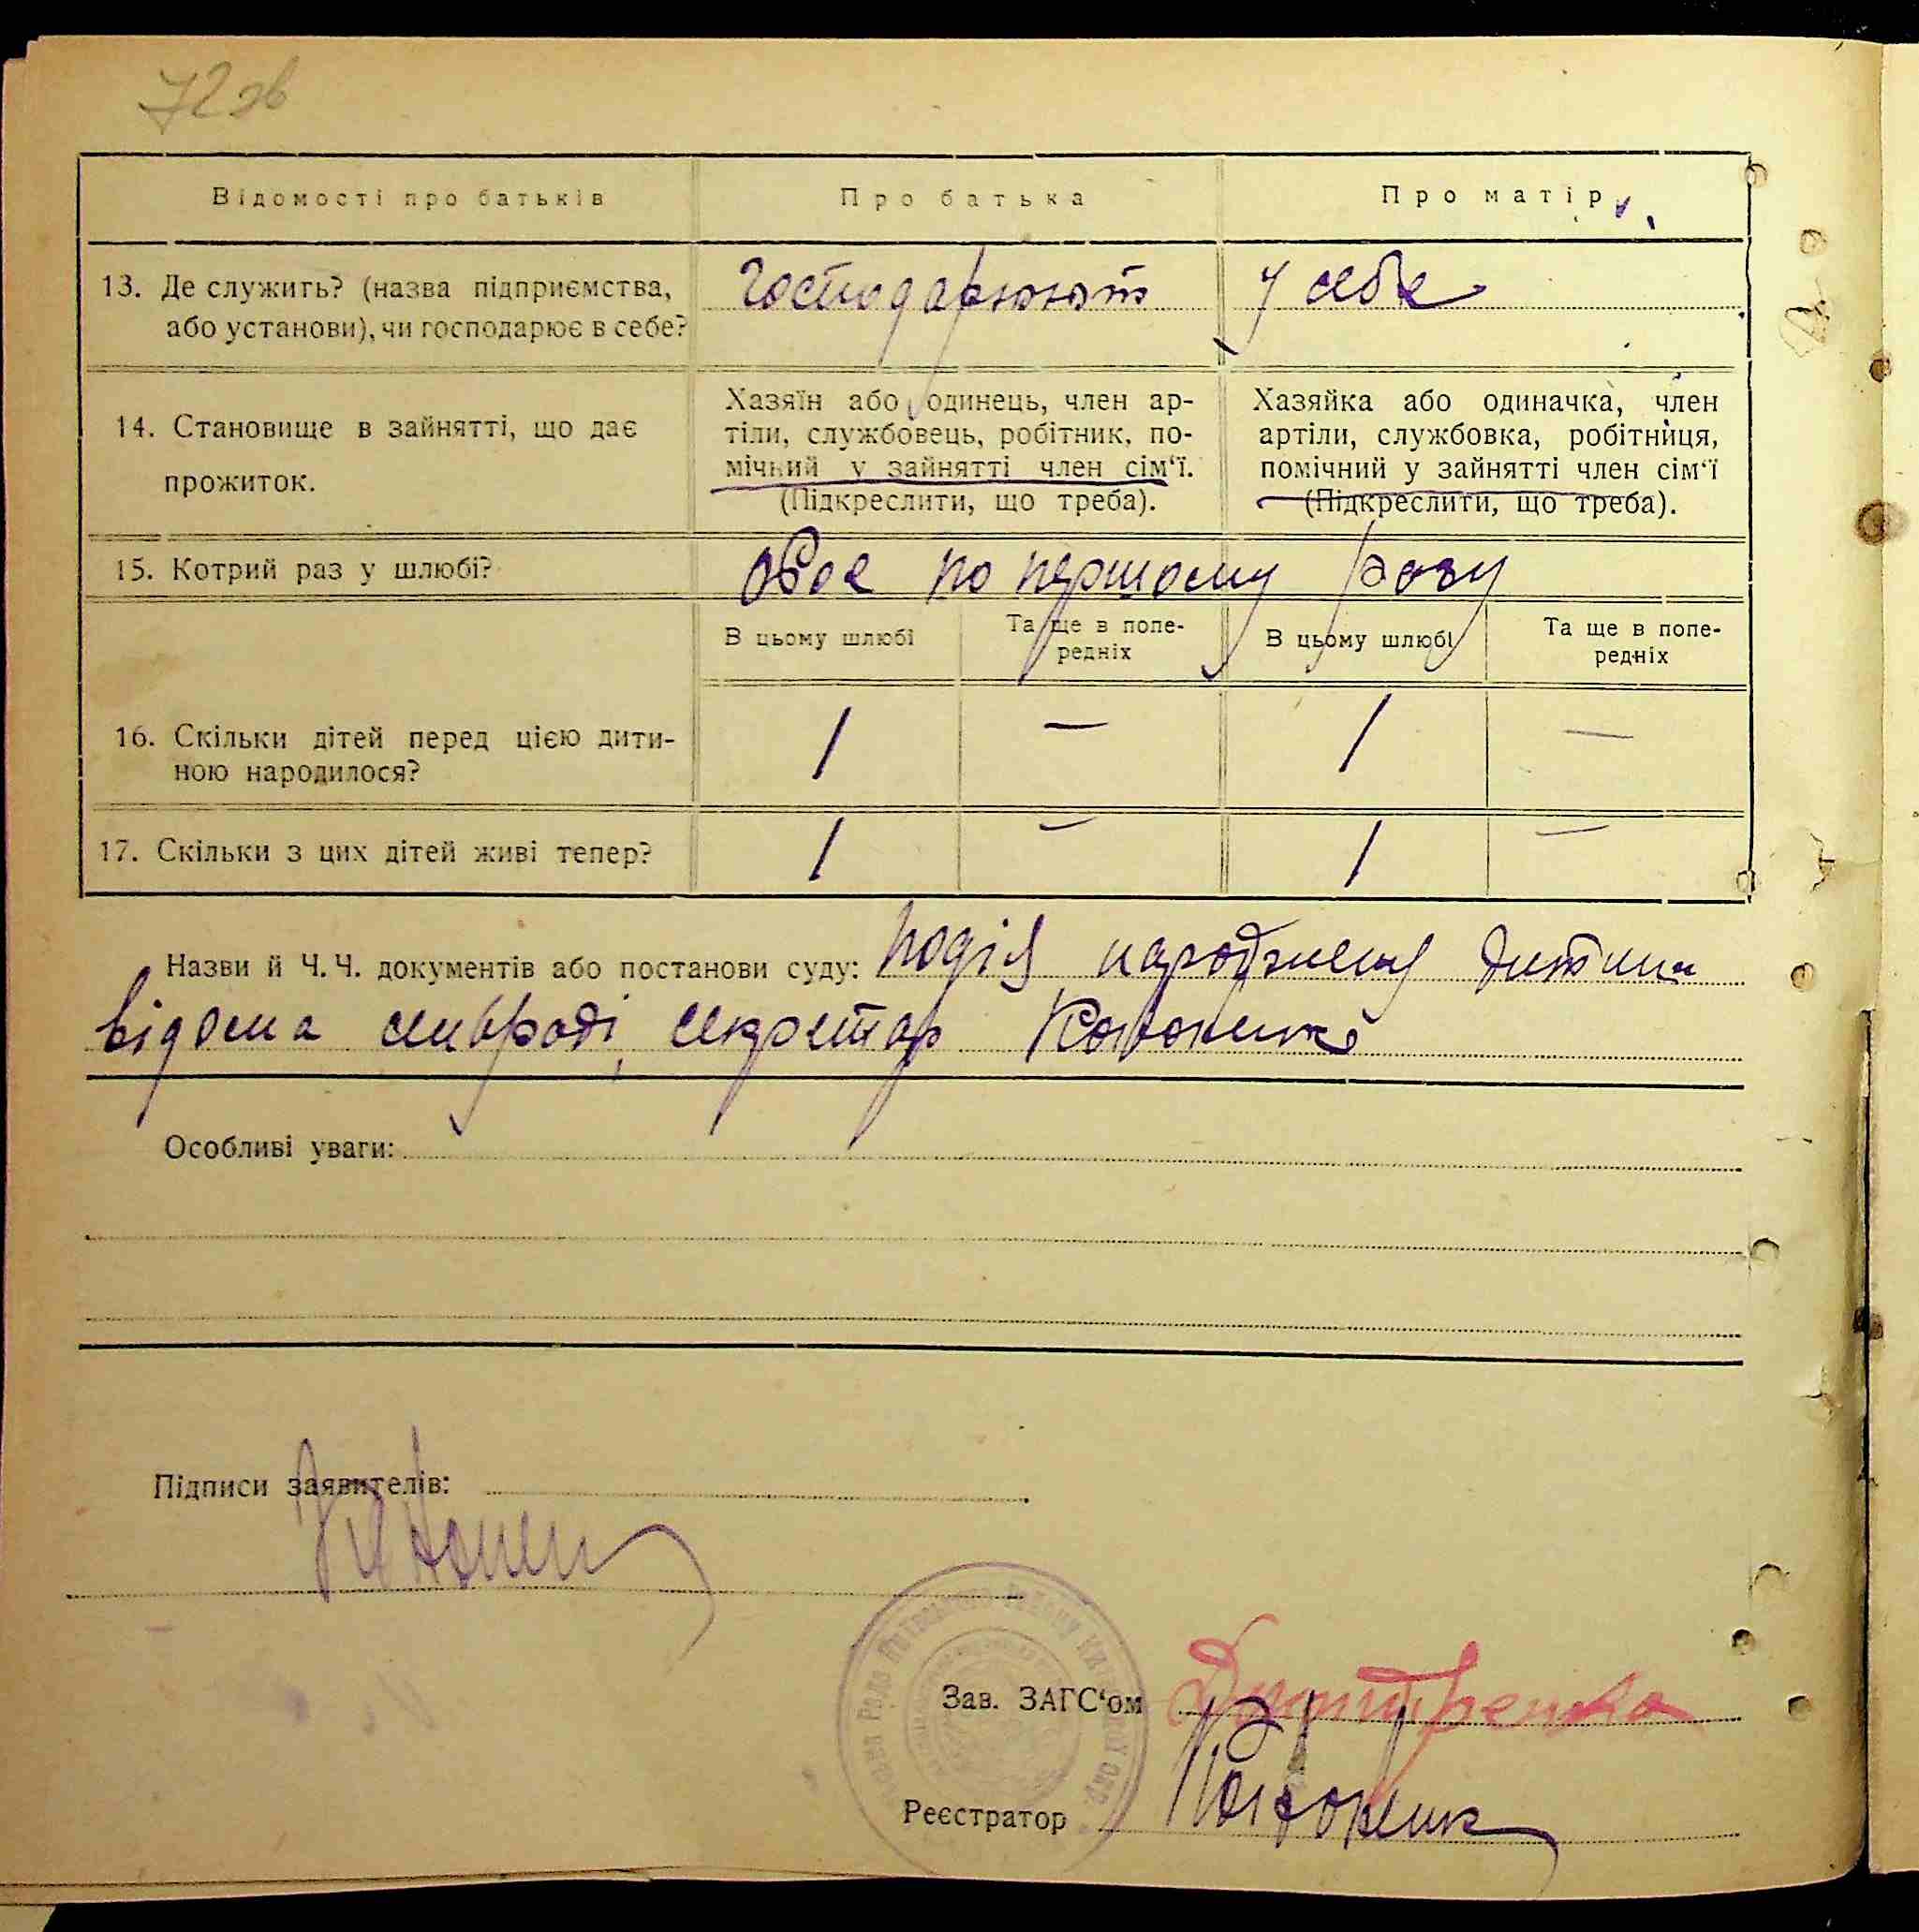 72 зв
Відомості про батьків Про батька Про матір
13. Де служить? (назва підприємства, або установи), чи господарює в себе?
Господарюють у себе
14. Становище в зайнятті, що дає прожиток.
Хазяїн або одинець, член ар-
тіли, службовець, робітник, по-
мічний у зайнятті член сім‘ї.
(Підкреслити, що треба).
Хазяйка або одиначка, член
артіли, службовка, робітниця,
помічний у зайнятті член сім‘ї
(Підкреслити, що треба).
15. Котрий раз у шлюбі? обоє по першому разу
В цьому шлюбі Та ще в попе-редніх В цьому шлюбі Та ще в попе-редніх
16. Скільки дітей перед цією дити-
ною народилося? 1 — 1 —
17. Скільки з цих дітей живі тепер? 1 — 1 —
Назви й Ч.Ч. документів або постанови суду: подія народження дитини
відома сільраді, секретар
Особливі уваги:
Підписи заявителів:
Зав. ЗАГС‘ом Дмитренко
Реєстратор